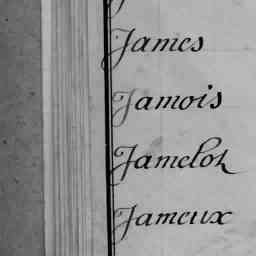 James
Jamois
Jamelot
Jameux